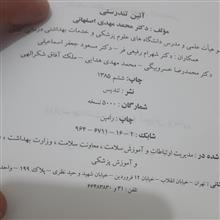 آئین تندرستی
مؤلف: دکتر محمد مهدی اصفهانی
هیأت علمی و مدرس دانشگاه های علوم پزشکی و خدمات بهداشتی درمانی
همکاران: دکتر شهرام رفیعی فر - دکتر مسعود جعفر اسماعیلی
دکتر محمدرضا خسروبیگی - محمد مهدی هدایی - ملک آفاق شکرالهی
چاپ: ششم ۱۳۸۵
نشر: تندیس
شمارگان: ۵۰۰۰ نسخه
چاپ: رامین
شابک: ۲-۱۶-۶۷۱۱-۹۶۴
شده در: مدیریت ارتباطات و آموزش سلامت، معاونت سلامت، وزارت بهداشت،
و آموزش پزشکی
تهران - خیابان انقلاب - خیابان ۱۲ فروردین - خیابان شهید وحید نظری - پلاک ۱۹۹ - واحد
تلفن: ۳۱ و ۶۶۴۸۳۸۳۰